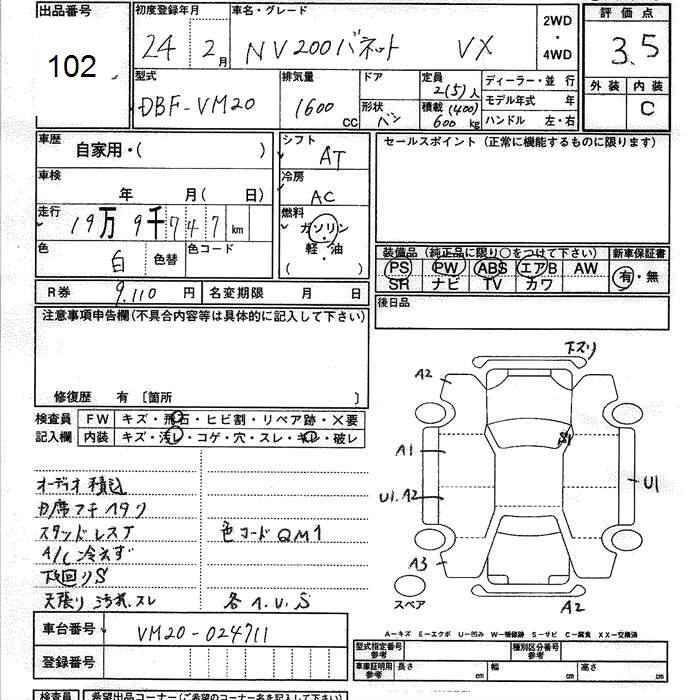 出品番号
102
初度登録年月
24 2月
車名・グレード
NV200バネット VX
2WD
・
4WD
評価点
3.5
外装 内装
C
型式
DBF-VM20
排気量
1600
CC
ドア
形状
バン
定員
2(5)人
積載(400)
600kg
ディーラー・並行
モデル年式 年
ハンドル 左・右
車歴
自家用・( )
車検
年 月( 日)
走行
19万9千747km
色
白
色替
色コード
シフト
AT
冷房
AC
燃料
ガソリン
・
軽・油
( )
セールスポイント(正常に機能するものに限ります)
装備品(純正品に限り○をつけて下さい)
新車保証書
PS PW ABS エアB AW
SR ナビ TV カワ
有・無
R券 9,110円
名変期限 月 日
後日品
注意事項申告欄(不具合内容等は具体的に記入して下さい)
修復歴 有〔箇所 〕
検査員
記入欄
FW キズ・飛石・ヒビ割・リペア跡・X要
内装 キズ・汚レ・コゲ・穴・スレ・キレ・破レ
オーディオ積込
スタンドレスT
A/C冷えず
下回りS
天張り汚れ.スレ
色コードQM1
各A.U.S
下スリ
A2
S1
A1
U1
U1.A2
A3
A2
スペア
A―キズ E―エクボ U―凹み W―補修跡 S―サビ C―腐食 XX―交換済
車台番号
VM20-024711
登録番号
型式指定番号
参考
種別区分番号
参考
車庫証明用
参考
長さ cm
幅 cm
高さ cm
検査員
希望出品コーナー(ご希望のコーナー名を記入して下さい)